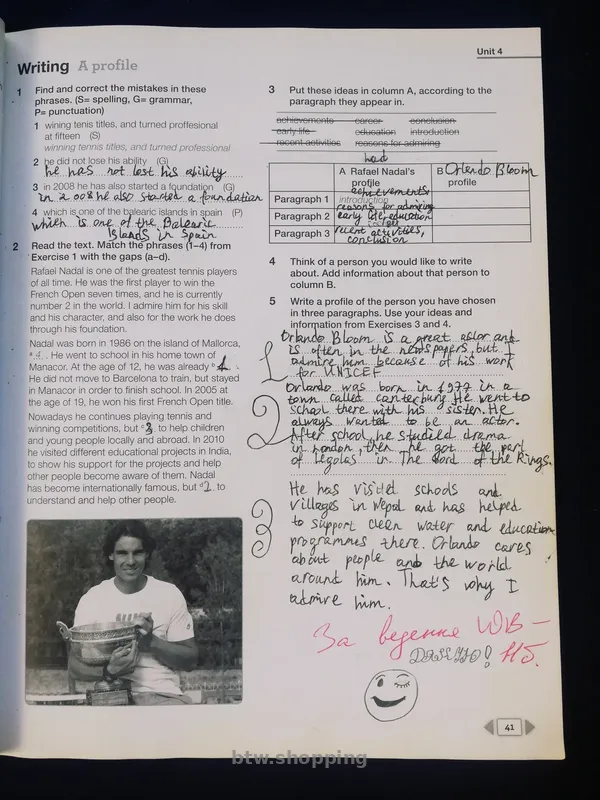 Unit 4
Writing A profile
1 Find and correct the mistakes in these
phrases. (S= spelling, G= grammar,
P= punctuation)
1 wining tenis titles, and turned proffesional
at fifteen (S)
winning tennis titles, and turned professional
2 he did not lose his ability (G)
he has not lost his ability
3 in 2008 he has also started a foundation (G)
in 2008 he also started a foundation
4 which is one of the balearic islands in spain (P)
which is one of the Balearic
Islands in Spain
2 Read the text. Match the phrases (1–4) from
Exercise 1 with the gaps (a–d).
Rafael Nadal is one of the greatest tennis players
of all time. He was the first player to win the
French Open seven times, and he is currently
number 2 in the world. I admire him for his skill
and his character, and also for the work he does
through his foundation.
Nadal was born in 1986 on the island of Mallorca,
a 4. He went to school in his home town of
Manacor. At the age of 12, he was already b 1.
He did not move to Barcelona to train, but stayed
in Manacor in order to finish school. In 2005 at
the age of 19, he won his first French Open title.
Nowadays he continues playing tennis and
winning competitions, but c 3. to help children
and young people locally and abroad. In 2010
he visited different educational projects in India,
to show his support for the projects and help
other people become aware of them. Nadal
has become internationally famous, but d 2 to
understand and help other people.
3 Put these ideas in column A, according to the
paragraph they appear in.
achievements career conclusion
early life education introduction
recent activities reasons for admiring
had
A Rafael Nadal's
profile
B Orlando Bloom
profile
achievements
Paragraph 1 introduction
reasons for admiring
Paragraph 2 early life, education
Paragraph 3 recent activities,
conclusion
4 Think of a person you would like to write
about. Add information about that person to
column B.
5 Write a profile of the person you have chosen
in three paragraphs. Use your ideas and
information from Exercises 3 and 4.
1 Orlando Bloom is a great actor and
is often in the newspapers, but I
admire him because of his work
for UNICEF
2 Orlando was born in 1977 in a
town called canterbury. He went to
school there with his sister. He
always wanted to be an actor.
After school, he studied drama
in London, then he got the part
of Legolas in The Lord of the Rings.
3 He has visited schools and
villages in Nepal and has helped
to support clean water and education
programmes there. Orlando cares
about people and the world
around him. That's why I
admire him.
За ведення WB –
ДЯКУЮ! НБ.
41
btw.shopping